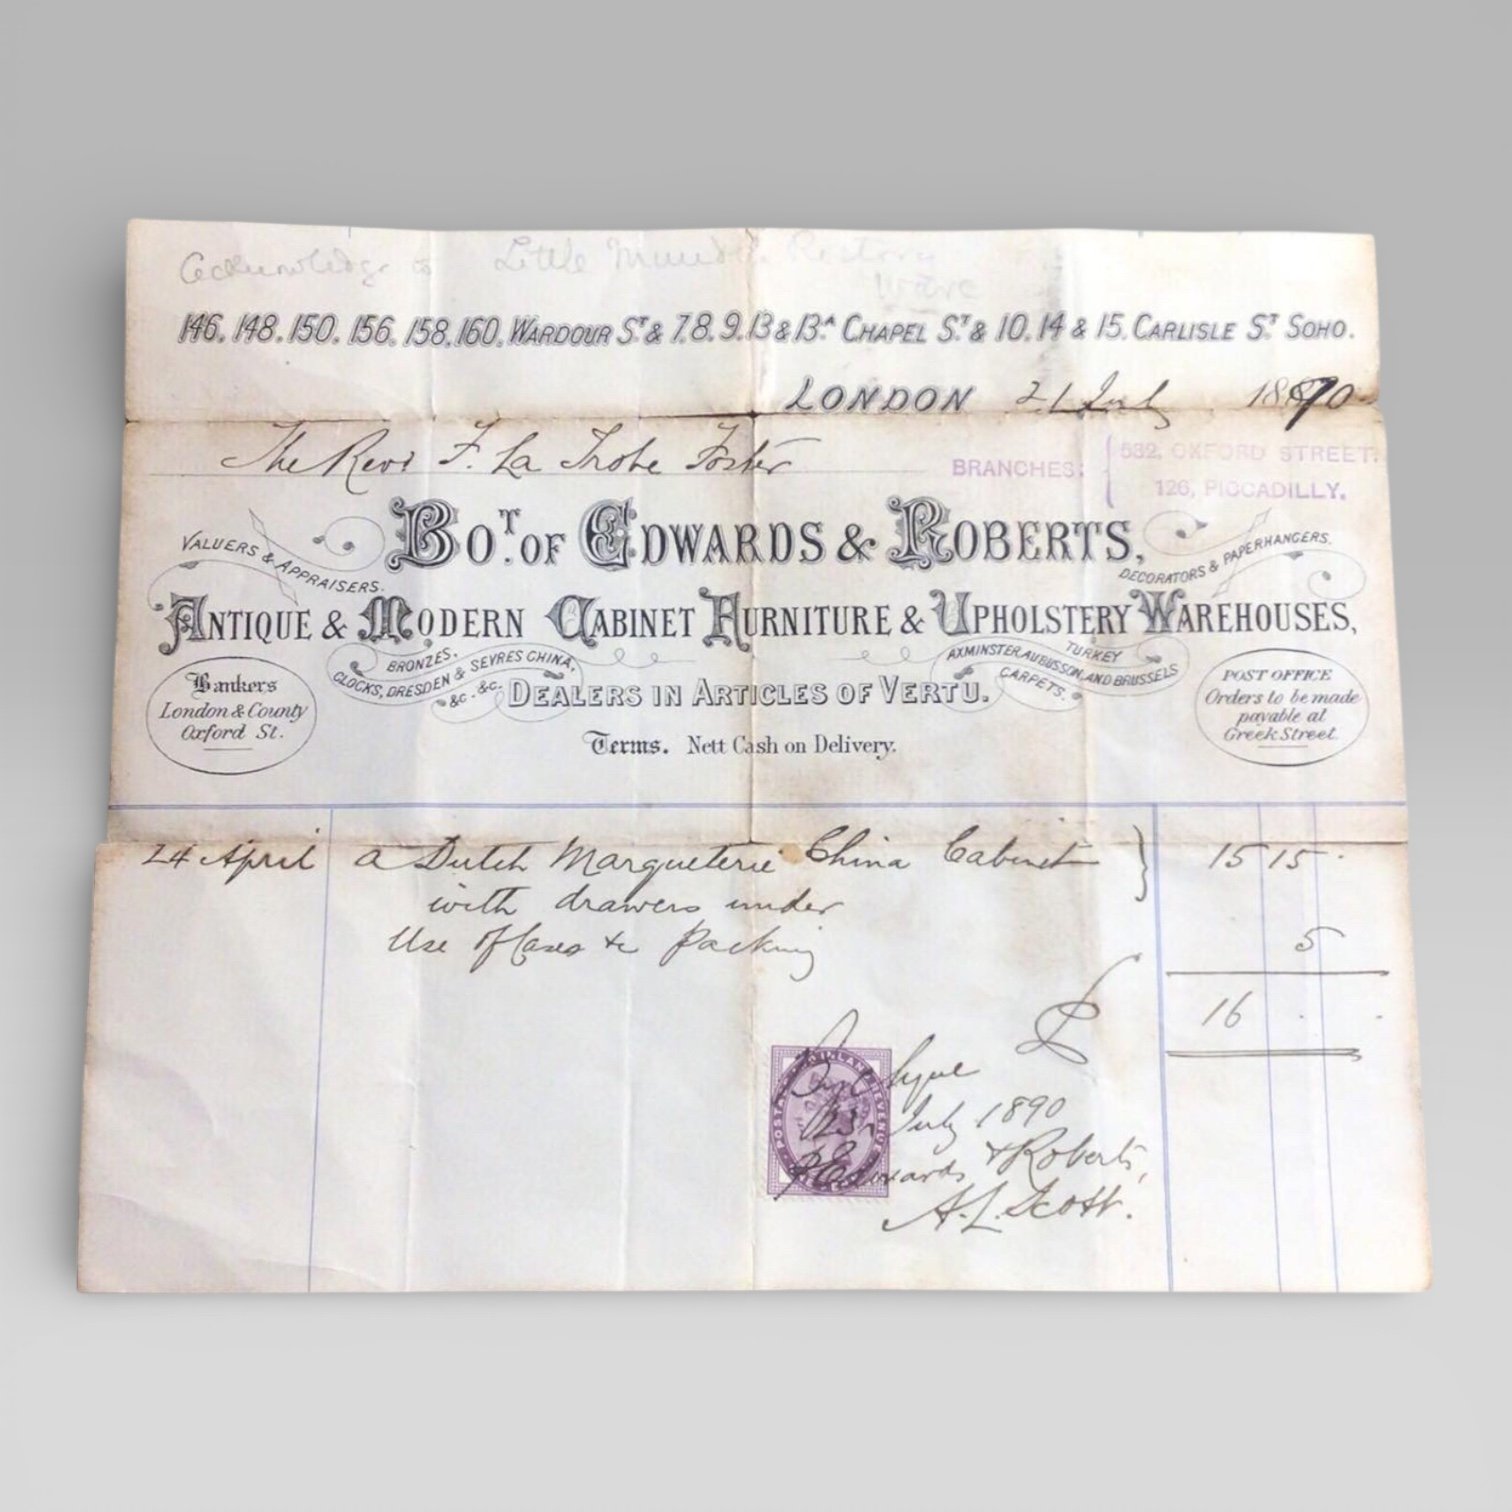 Acknowledge to Little Rectory
146. 148. 150. 156. 158. 160. WARDOUR ST. & 7. 8. 9. 13 & 13A CHAPEL ST. & 10. 14 & 15. CARLISLE ST. SOHO.
LONDON 21 July 1890
The Revd F. La Trobe Foster
BRANCHES: 532, OXFORD STREET.
126, PICCADILLY.
VALUERS & APPRAISERS.
BOT. OF EDWARDS & ROBERTS,
DECORATORS & PAPERHANGERS.
ANTIQUE & MODERN CABINET FURNITURE & UPHOLSTERY WAREHOUSES,
BRONZES,
CLOCKS, DRESDEN & SEVRES CHINA,
&C. &C.
DEALERS IN ARTICLES OF VERTU.
TURKEY
AXMINSTER, AUBUSSON, AND BRUSSELS
CARPETS.
Bankers
London & County
Oxford St.
POST OFFICE
Orders to be made
payable at
Greek Street.
Terms. Nett Cash on Delivery.
24 April a Dutch Marqueterie China Cabinet } 15 15 .
with drawers under
Use of Cases & Packing 5
£ 16 . .
By Cheque
23 July 1890
p Edwards & Roberts,
A. L. Scott.